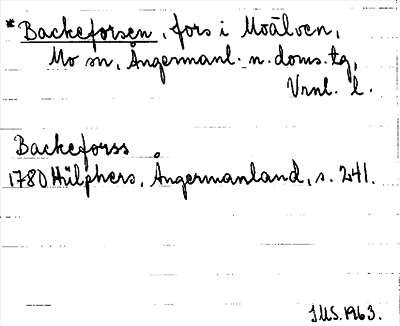 *Backeforsen, fors i Moälven,
Mo sn, Ångermanl. n. doms. tg,
Vrnl. l.
Backeforss
1780 Hülphers, Ångermanland, s. 241.
IMS. 1963.